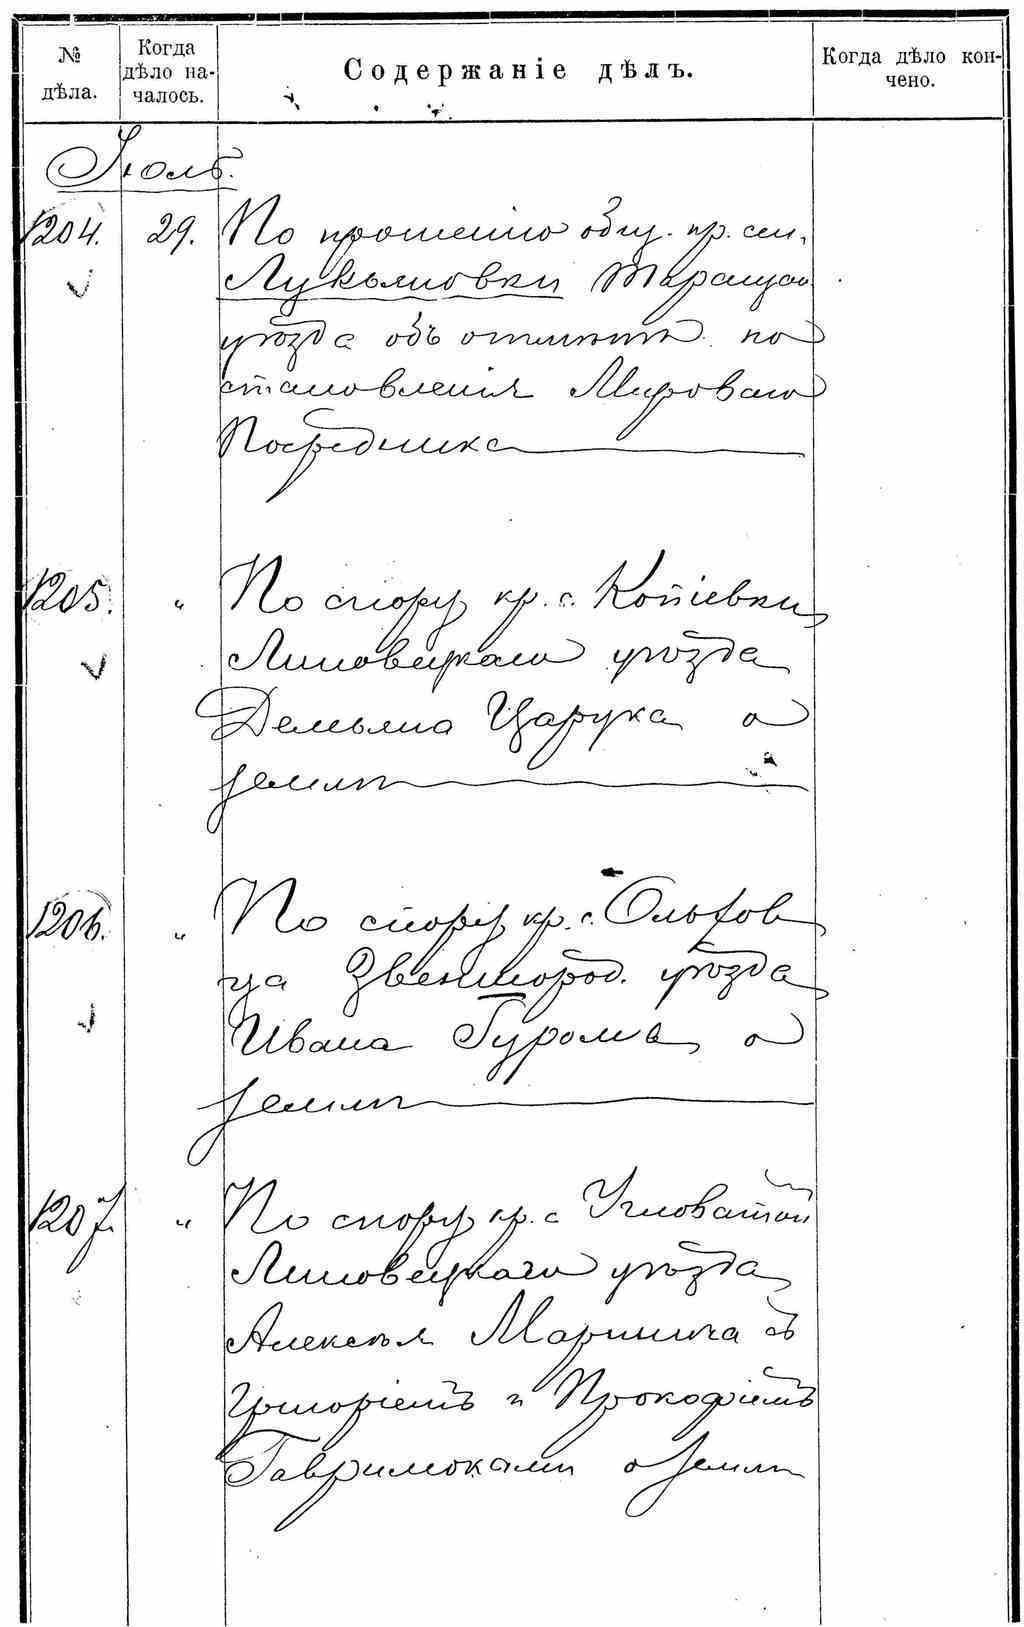 № дѣла.
Когда дѣло на-
чалось.
Содержаніе дѣлъ.
Когда дѣло кон-
чено.
Іюль.
1204. 29. По прошенію общ. кр. сел.
Лукьяновки Таращан.
уѣзда объ отмѣнѣ по
становленія Мироваго
Посредника
1205. „ По спору кр. с. Копіевки
Липовецкаго уѣзда
Демьяна Царука о
землѣ
1206. „ По спору кр. с. Ольхов
ца Звенигород. уѣзда
Ивана о
землѣ
1207. „ По спору кр. с. Угловатой
Липовецкаго уѣзда
Алексѣя Маринича съ
Григоріемъ и Прокофіемъ
Гаврилюками о землѣ